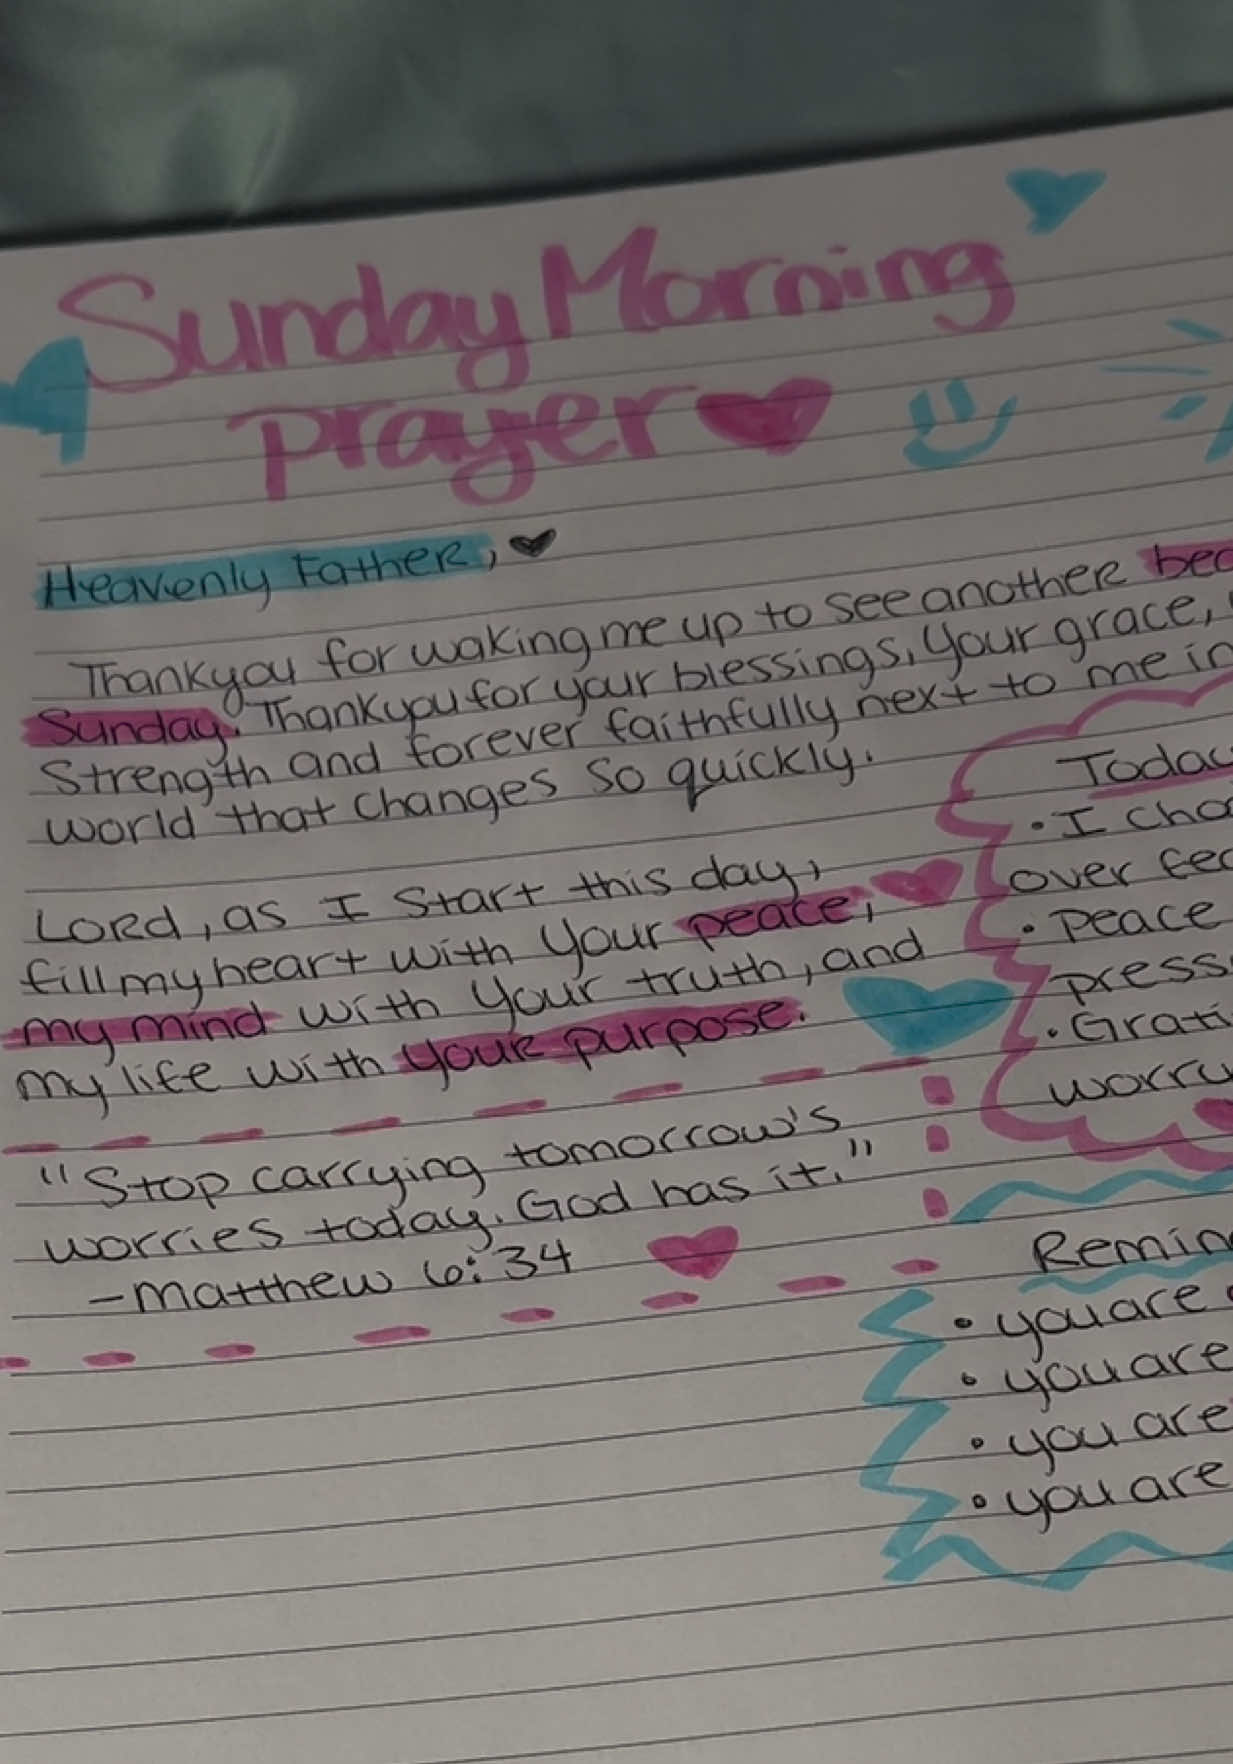 Sunday Morning
prayer
Heavenly Father,
Thank you for waking me up to see another
Sunday. Thank you for your blessings, your grace,
strength and forever faithfully next to me in
world that changes so quickly.
Lord, as I start this day,
fill my heart with your peace,
my mind with your truth, and
my life with your purpose.
"Stop carrying tomorrow's
worries today. God has it."
-Matthew 6:34
Today
• I
over
• Peace
• 
• you are
• you are
• you are
• you are